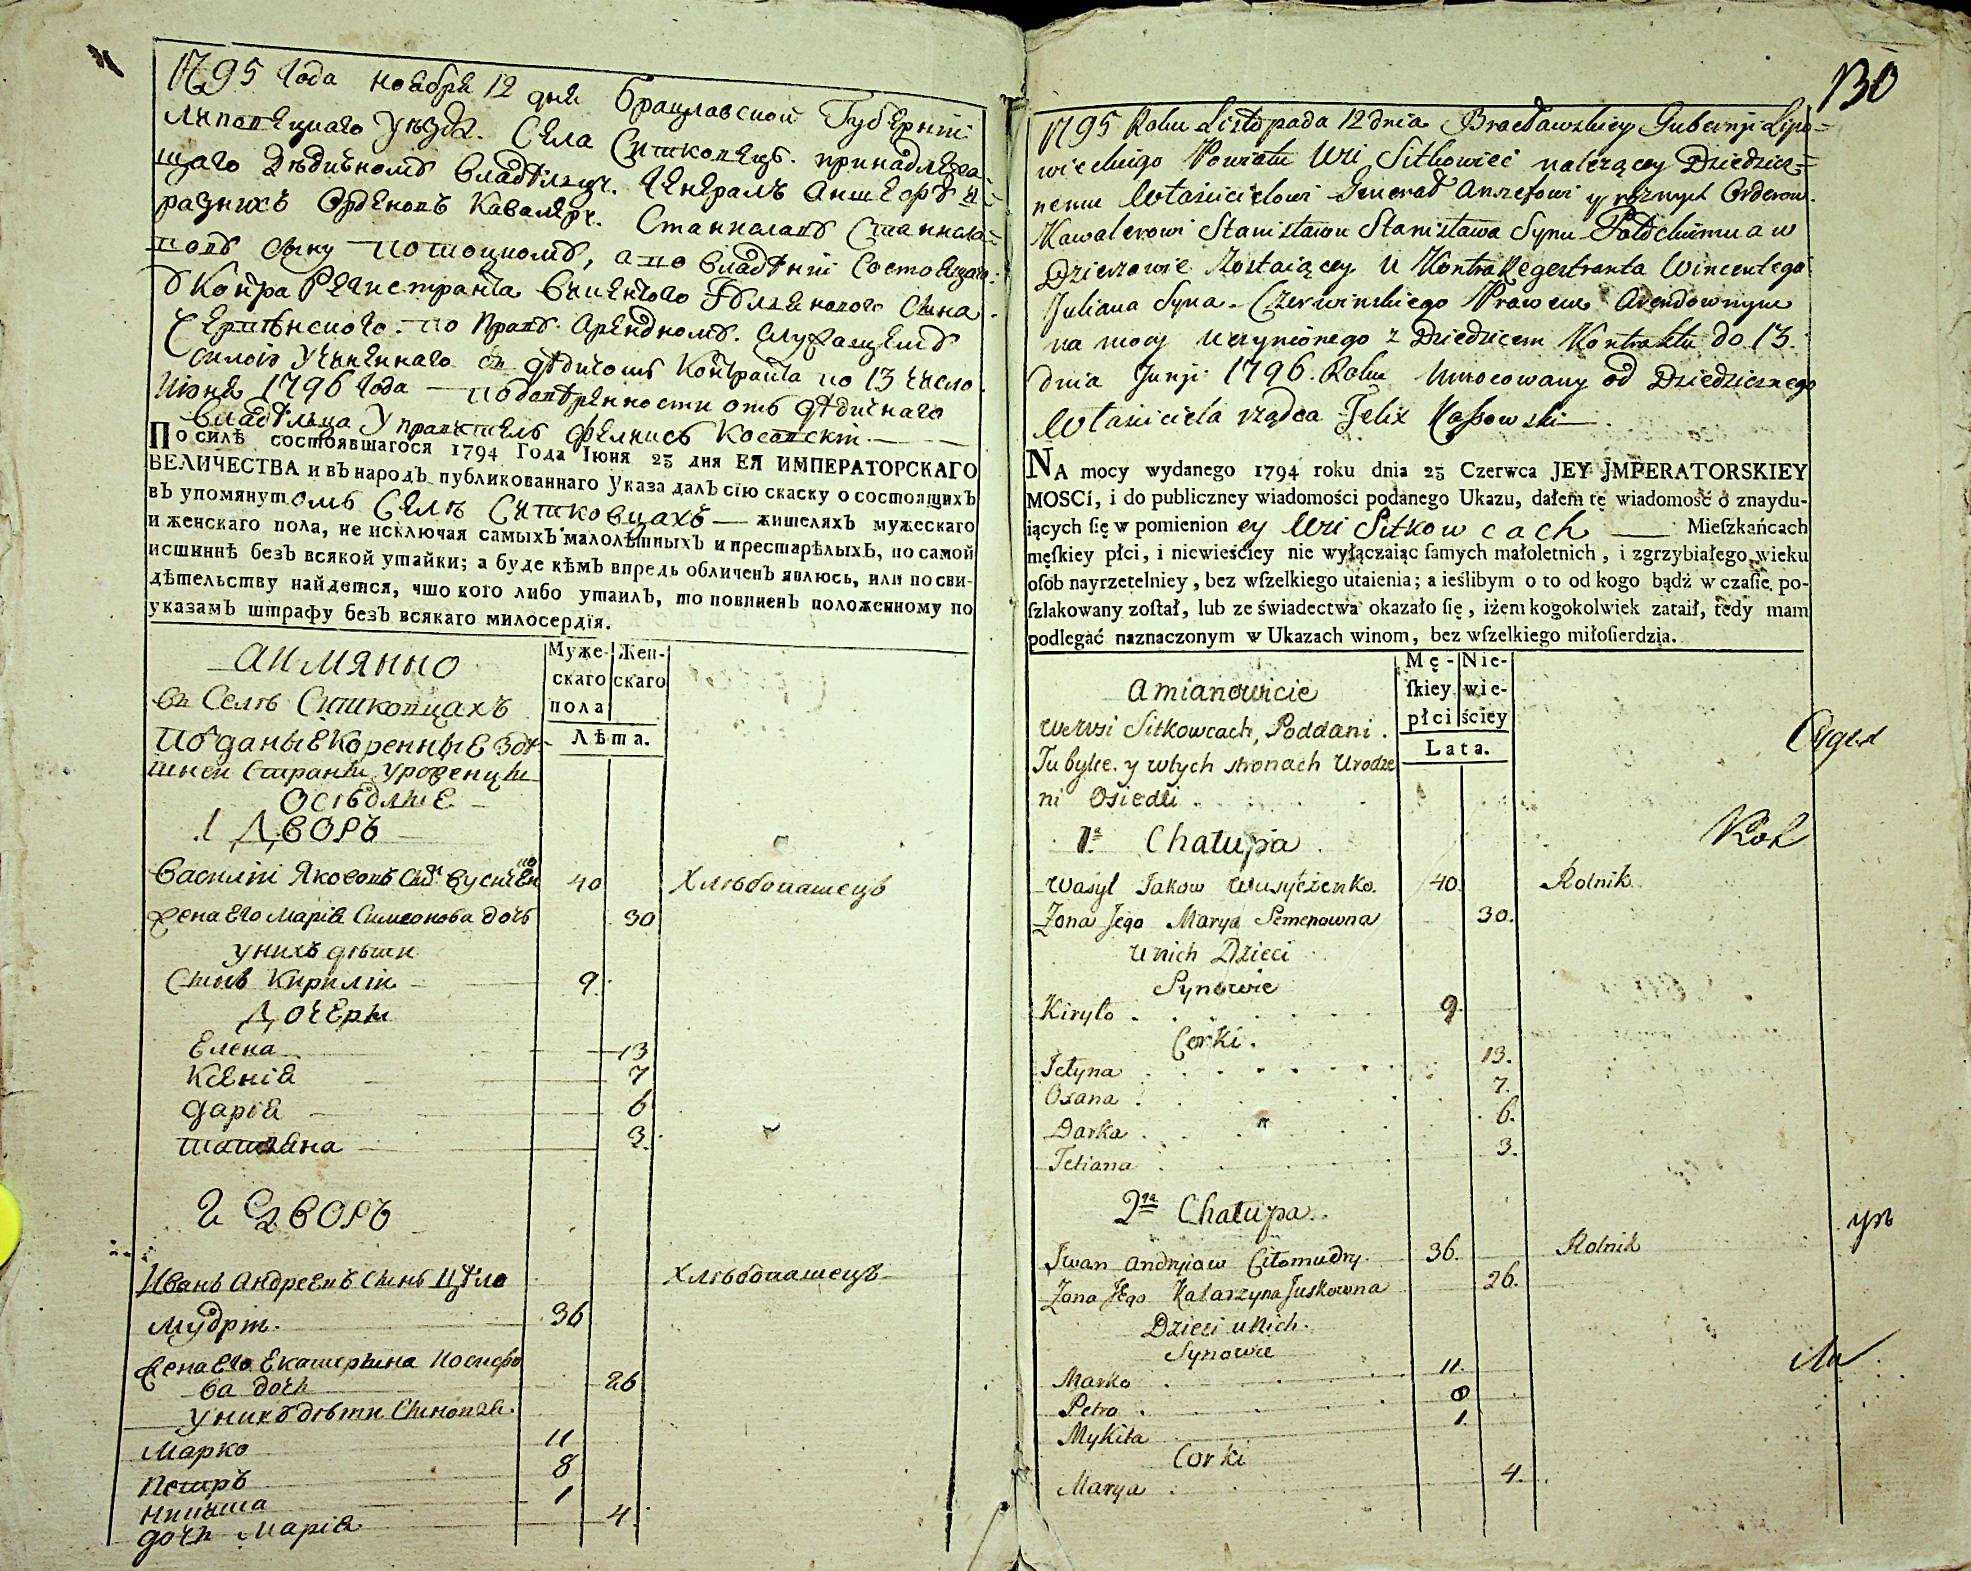 1795 Года ноября 12 дня Брацлавской Губернїи
Липовецкаго Уѣзда. Села Ситковецъ. принадлежа-
щаго Дѣдичномѣ владѣлцу. Генералъ Аншефѣ и
разнихъ Орденовъ Кавалеру. Станиславѣ Станисла-
повѣ сыну Потоцкомѣ, а во владѣнїи состоящаго
ѣ Контра Регистранта Викентого Юлиенового сына
Червѣнского. по Правѣ Арендномѣ. служащемѣ
силою учиненнаго съ дѣдичомъ Контракта по 13 число
Июня 1796 Года — по довѣренности отъ дѣдичнаго
владѣльца Управитель Феликсъ Косовскїй —
По силѣ состоявшагося 1794 Года Іюня 23 дня ЕЯ ИМПЕРАТОРСКАГО
ВЕЛИЧЕСТВА и въ народъ публикованнаго Указа далъ сїю скаску о состоящихъ
въ упомянутомъ Селѣ Ситковцахъ — жителяхъ мужескаго
и женскаго пола, не исключая самыхъ малолѣтныхъ и престарѣлыхъ, по самой
истиннѣ безъ всякой утайки; а буде кѣмъ впредь обличенъ явлюсь, или по сви-
дѣтельству найдется, что кого либо утаилъ, то повиненъ положенному по
указамъ штрафу безъ всякаго милосердїя.
Муже- Жен-
скаго скаго
пола
Лѣта.
АИМЯННО
въ Селѣ Ситковцахъ
Подданые Коренные Здѣ-
шней Страны уроденцы
Осѣдлые
1 ДВОРЪ
Василїй Якововъ Снъ Вусичен
ко 40 Хлѣбопашецъ
Жена Его Марїя Симеонова дочь 30
у нихъ дѣти
Сынъ Кирилїй 9.
ДОЧЕРЫ
Елена 13
Ксенїя 7
Дарїя 6
Татїяна 3.
2 ДВОРЪ
Иванъ Андреевъ Сынъ Цѣло Хлѣбопашецъ
мудры. 36
Жена Его Екатерына Иосифо
ва дочь 26
у нихъ дѣти Сыновья.
Марко 11
Петръ 8
Никита 1
дочь Марїя 4.
130
1795 Roku Listopada 12 dnia Bracławskiey Gubernji Lipo=
wieckiego Powiatu Wsi Sitkowiec należącey Dziedzicz=
nemu Włascicielowi Generał Anszefowi y roznych Orderow
Kawalerowi Stanisławu Stanisława Synu Potockiemu a w
Dzierzawie zostaiącey U KontraRegestranta Wincentego
Juliana Syna Czerwinskiego Prawem Arendownym
na mocy uczynionego z Dziedzicem Kontraktu do 13.
dnia Junji 1796. Roku Umocowany od Dziedzicznego
Własciciela rządca Felix Kassowski
NA mocy wydanego 1794 roku dnia 23 Czerwca JEY JMPERATORSKIEY
MOSCi, i do publiczney wiadomości podanego Ukazu, dałem tę wiadomość o znaydu-
iących ſię w pomienioney Wsi Sitkowcach — Mieſzkańcach
męſkiey płci, i niewieściey nie wyłączaiąc ſamych małoletnich, i zgrzybiałego wieku
oſób nayrzetelniey, bez wſzelkiego utaienia; a ieślibym o to od kogo bądź w czaſie po-
ſzlakowany zoſtał, lub ze świadectwa okazało ſię, iżem kogokolwiek zataił, tedy mam
podlegać naznaczonym w Ukazach winom, bez wſzelkiego miłoſierdzia.
Mę- Nie-
ſkiey wie-
płci ściey
Lata.
Amianowicie
We Wsi Sitkowcach, Poddani.
Tubylce. y wtych stronach Urodze
ni Osiedli
1a Chałupa
Wasyl Jakow Wusyczenko 40. Rolnik
Zona Jego Marya Semenowna 30.
U nich Dzieci
Synowie
Kiryło 9.
Corki.
Jełyna 13.
Oxana 7.
Darka 6.
Tetiana 3.
2ga Chałupa.
Jwan Andryiow Ciłomudry 36. Rolnik
Zona Jego Katarzyna Juskowna 26.
Dzieci u nich.
Synowie
Marko 11.
Petro 8
Mykita 1.
Corki
Marya 4.